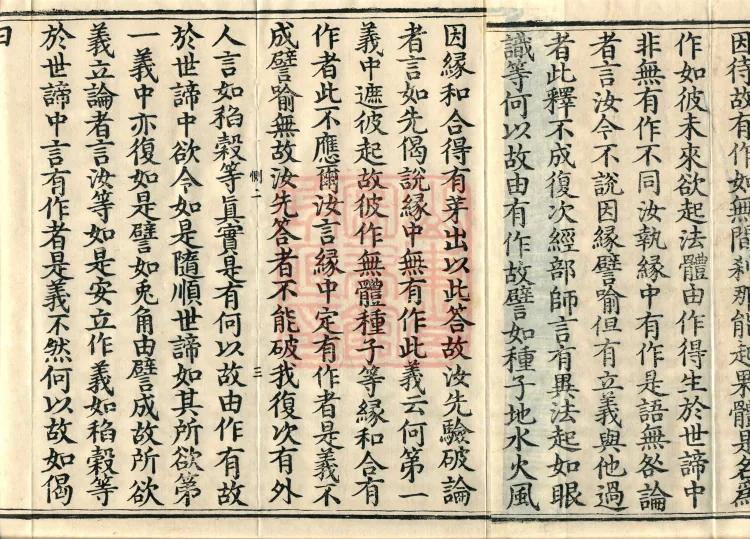 因待故有作如無間刹那能起果體是名為
作如彼未來欲起法體由作得生於世諦中
非無有作不同汝執緣中有作是語無咎論
者言汝今不説因緣譬喻但有立義與他過
者此釋不成復次經部師言有異法起如眼
識等何以故由有作故譬如種子地水火風
因緣和合得有芽出以此答故汝先驗破論
者言如先偈説緣中無有作此義云何第一
義中遮彼起故彼作無體種子等緣和合有
作者此不應爾汝言緣中定有作者是義不
成譬喻無故汝先答者不能破我復次有外
惻二 三
人言如稻穀等真實是有何以故由作有故
於世諦中欲令如是隨順世諦如其所欲第
一義中亦復如是譬如兎角由譬成故所欲
義立論者言汝等如是安立作義如稻穀等
於世諦中言有作者是義不然何以故如偈
曰